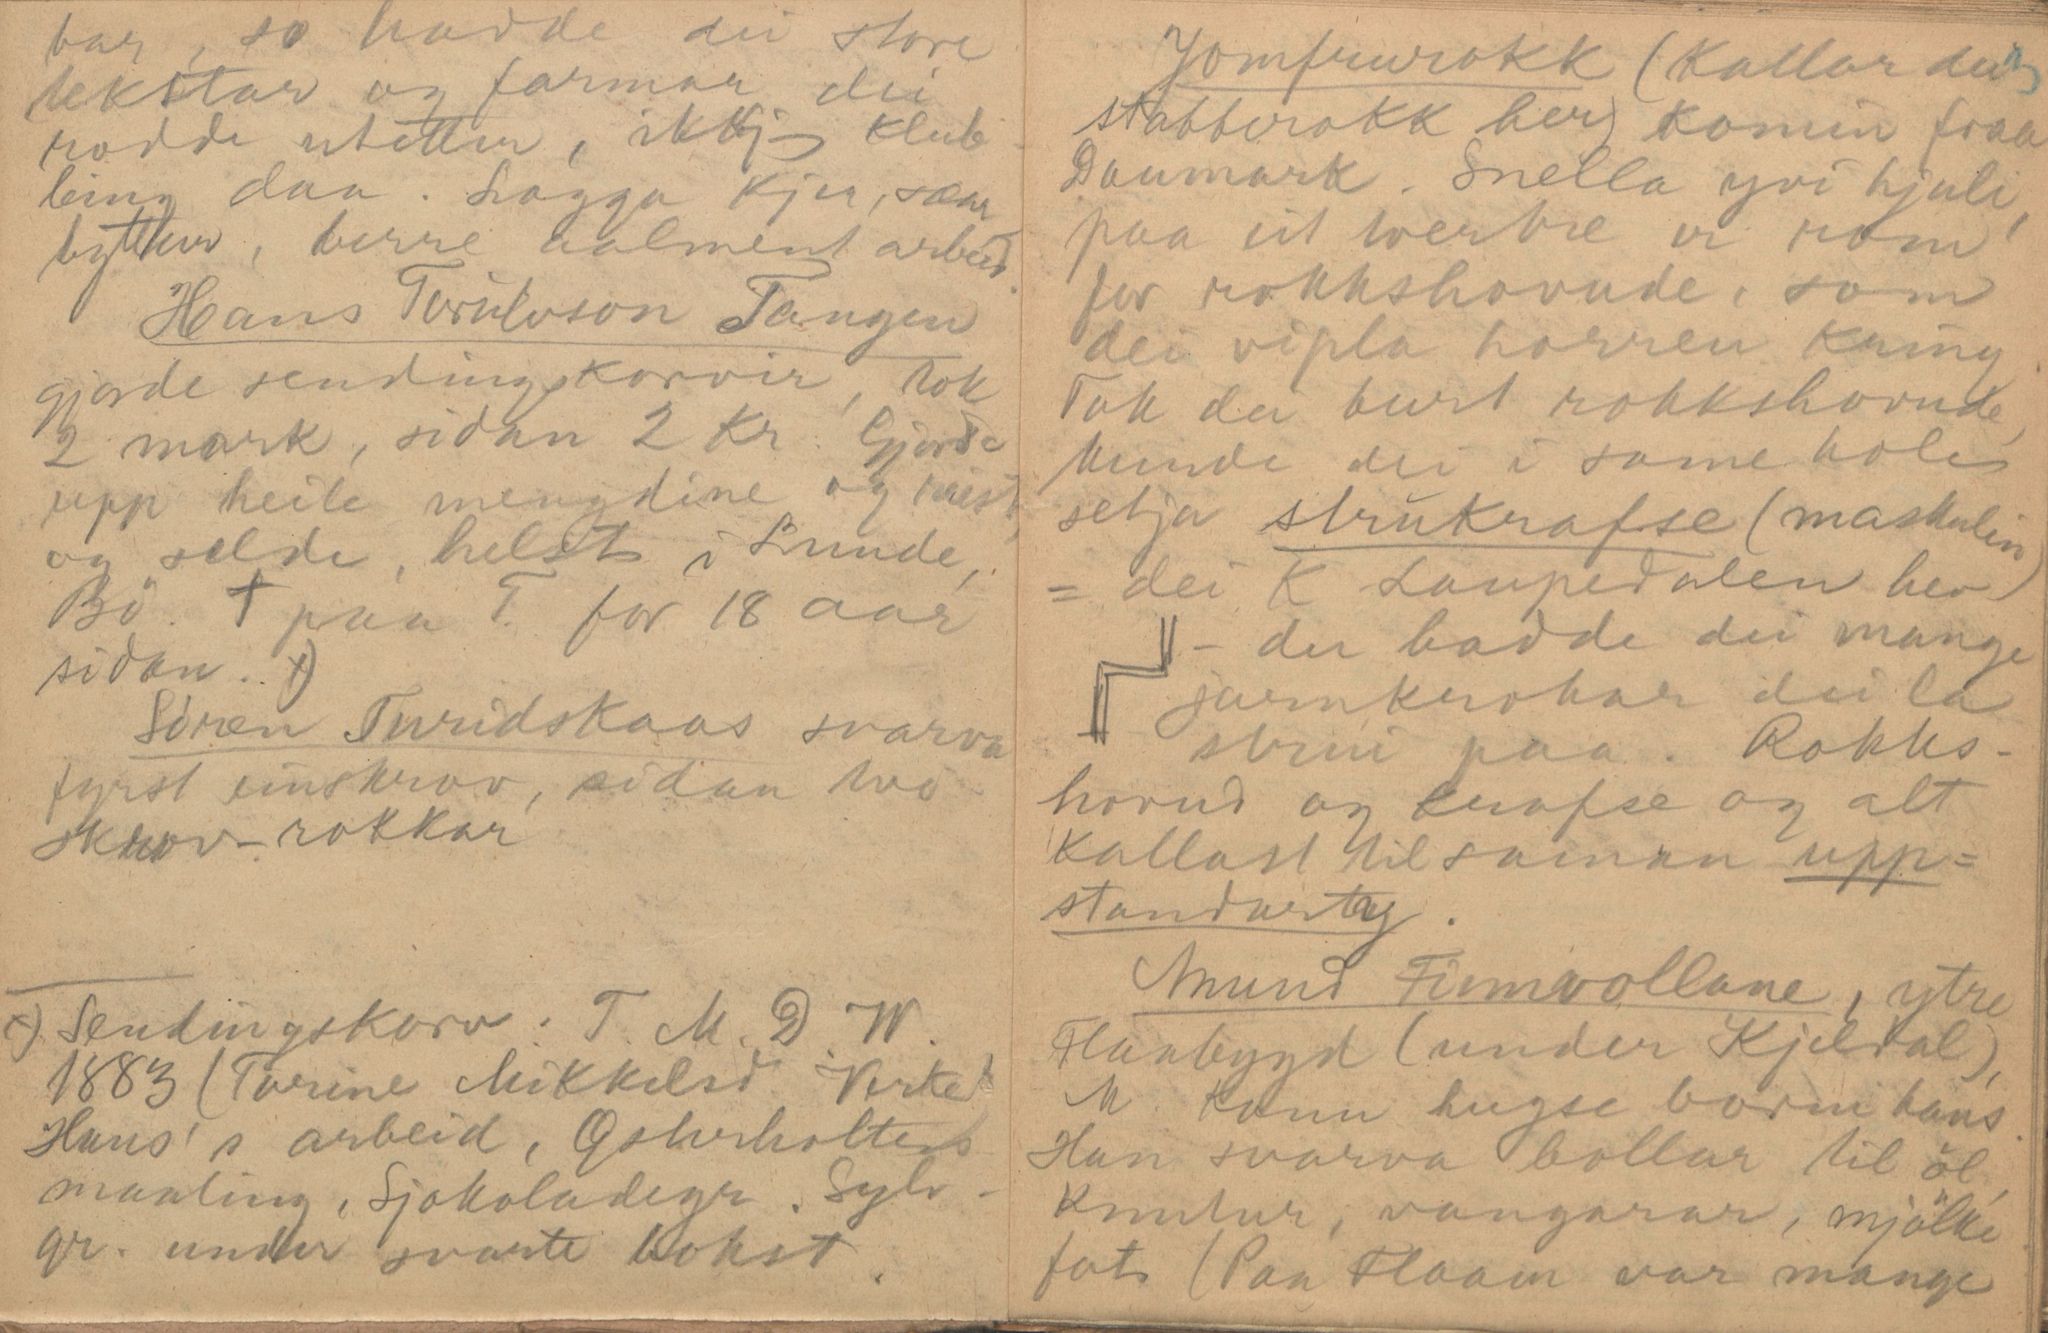 bar, so hadde dei store
tekstar og farmar dei
rodde utetter, ikkje klub-
bing daa. Lagga kjer, saar
bytter, berre aalment arbeid.
Hans Torülvson Tangen
gjorde sendingskorvir, tok
2 mark, sidan 2 Kr. Gjorde
upp heile mengdine og reist
og selde, helst i Lunde,
Bö. † paa T. for 18 aar
sidan. x)
Sören Turidskaas svarva
fyrst einskrov, sidan two-
skrov-rokkar
x) Sendingskorv. T. M. D. W.
1883 (Torine Mikkelsd.
Hans's arbeid,
maaling, Sjokoladegr. Sylv-
gr. under svarte bokst.
Jomfrurokk (kallar dei
stabberokk her) komin fraa
Danmark. Snella yvi hjuli,
paa eit tvertre er rom
for rokkshovude, som
dei vipla horren kring
Tok dei burt rokkshovude,
kunde dei i same hole
setja strükrafse (maskulin
= dei K Laupedalen hev)
- der hadde dei mange
jarnkrokar dei la
strüi paa. Rokks-
hovud og krafse og alt
kallast til saman upp=
standarty.
Amund Finnvollane, ytre
Flaabygd (under Kjeldal),
M. kann hugse borni hans.
Han svarva bollar til öl,
Knutur, vangarar, mjölke
fat (Paa Flaam var mange